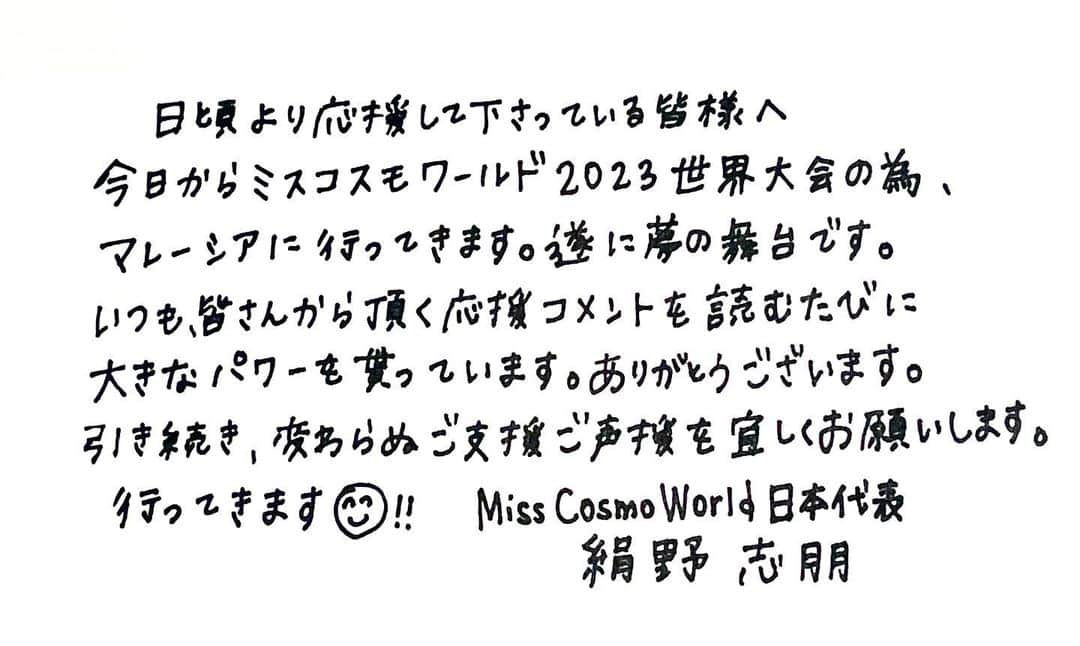 日頃より応援して下さっている皆様へ
今日からミスコスモワールド2023世界大会の為、
マレーシアに行ってきます。遂に夢の舞台です。
いつも、皆さんから頂く応援コメントを読むたびに
大きなパワーを貰っています。ありがとうございます。
引き続き、変わらぬご支援ご声援を宜しくお願いします。
行ってきます😊!! Miss Cosmo World 日本代表
絹野 志朋